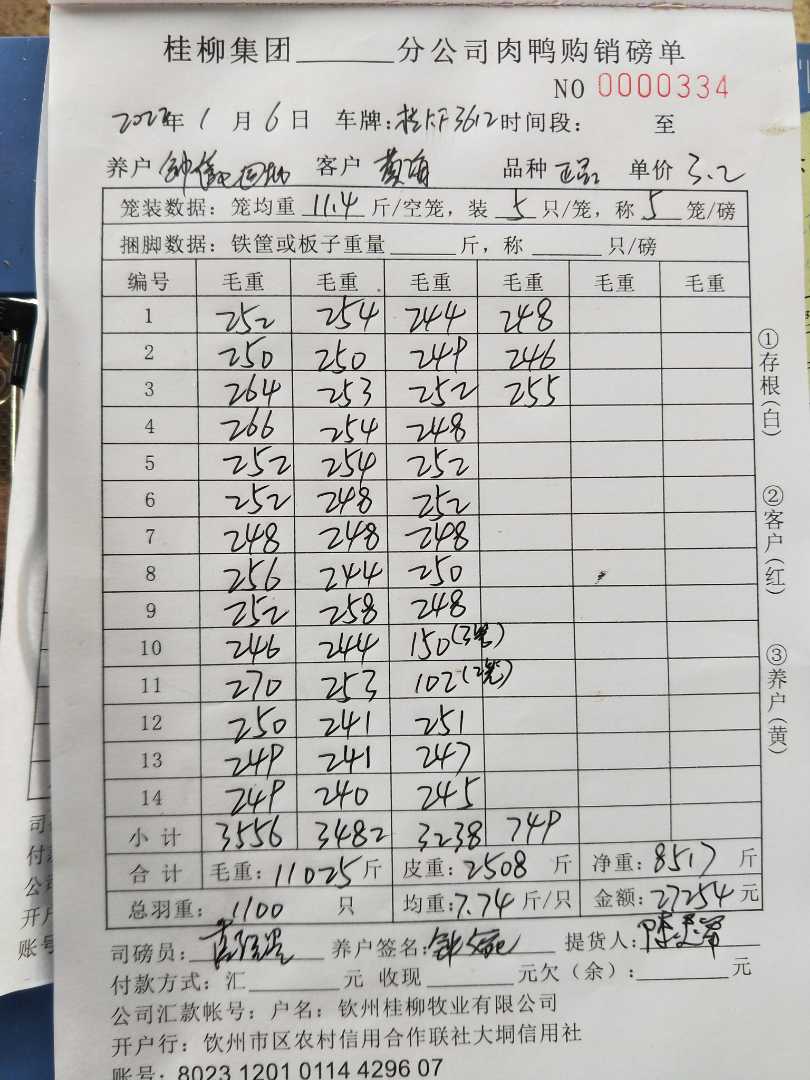 桂柳集团______分公司肉鸭购销磅单
NO 0000334
2022年 1 月 6 日 车牌:桂 3612 时间段: 至
养户 钟 客户 黄海 品种 正品 单价 3.2
笼装数据:笼均重 11.4 斤/空笼,装 5 只/笼,称 5 笼/磅
捆脚数据:铁筐或板子重量______斤,称______只/磅
编号 毛重 毛重 毛重 毛重 毛重 毛重
1 252 254 244 248
2 250 250 249 246
3 264 253 252 255
4 266 254 248
5 252 254 252
6 252 248 252
7 248 248 248
8 256 244 250
9 252 258 248
10 246 244 150(3笼)
11 270 253 102(2笼)
12 250 241 251
13 249 241 247
14 249 240 245
小计 3556 3482 3238 749
合计 毛重:11025斤 皮重:2508 斤 净重:8517 斤
总羽重: 1100 只 均重:7.74 斤/只 金额:27254 元
司磅员: 养户签名: 提货人:
付款方式:汇______元 收现______元欠(余):______元
公司汇款帐号:户名:钦州桂柳牧业有限公司
开户行:钦州市区农村信用合作联社大垌信用社
账号:8023 1201 0114 4296 07
①存根(白)
②客户(红)
③养户(黄)
司
付
公司
开户
账号